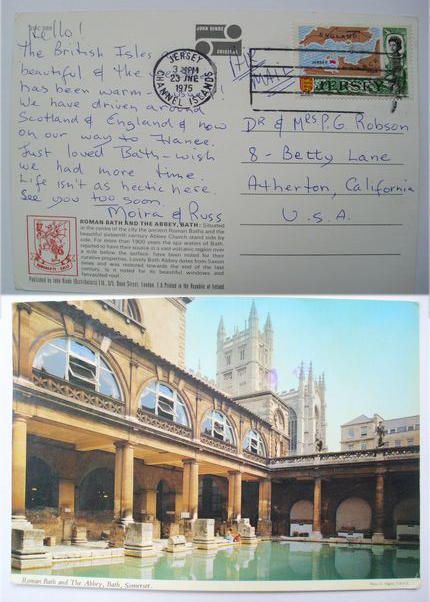 Hello!
The British Isles
beautiful & the
has been warm -
We have driven around
Scotland & England & now
on our way to France.
Just loved Bath - wish
we had more time.
Life isn't as hectic here.
See you too soon.
Moira & Russ
JOHN HINDE
ORIGINAL
JERSEY
3 PM
23 JNE
1975
CHANNEL ISLANDS
AIR
MAIL
ENGLAND
JERSEY
JERSEY
Dr & Mrs P.G. Robson
8 - Betty Lane
Atherton, California
U.S.A.
ROMAN BATH AND THE ABBEY, BATH: Situated
in the centre of the city the ancient Roman Baths and the
beautiful sixteenth century Abbey Church stand side by
side. For more than 1900 years the spa waters of Bath,
reputed to have their source in a vast volcanic region over
a mile below the surface have been noted for their
curative properties. Lovely Bath Abbey dates from Saxon
times and was restored towards the end of the last
century. It is noted for its beautiful windows and
fanvaulted roof.
Published by John Hinde (Distributors) Ltd., London. Printed in the Republic of Ireland.
Roman Bath and The Abbey, Bath, Somerset.